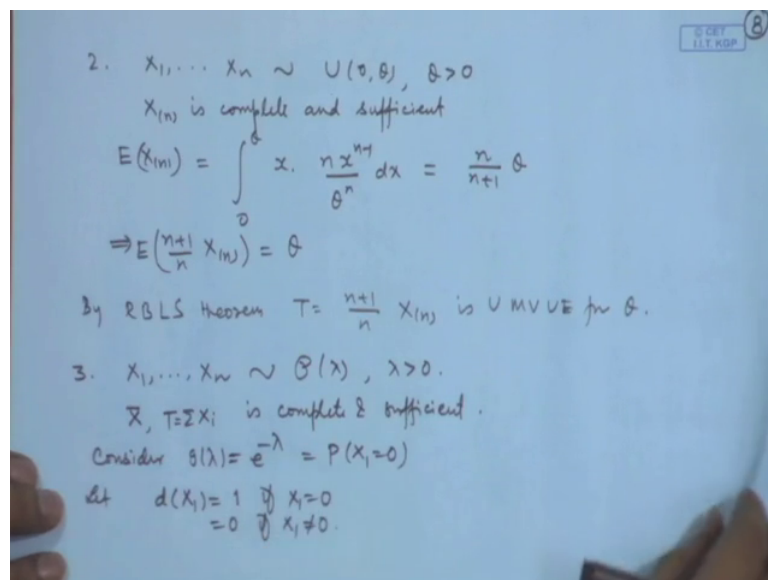 © CET
I.I.T. KGP
8
2. X₁, ... Xₙ ~ U(0,θ), θ>0
X₍ₙ₎ is complete and sufficient
E(X₍ₙ₎) = ∫₀^θ x. n xⁿ⁻¹/θⁿ dx = n/n+1 θ
⇒ E(n+1/n X₍ₙ₎) = θ
By RBLS theorem T = n+1/n X₍ₙ₎ is UMVUE for θ.
3. X₁, ..., Xₙ ~ P(λ), λ>0.
X̄, T=ΣXᵢ is complete & sufficient.
Consider g(λ) = e^-λ = P(X₁=0)
Let d(X₁) = 1 if X₁=0
=0 if X₁≠0.